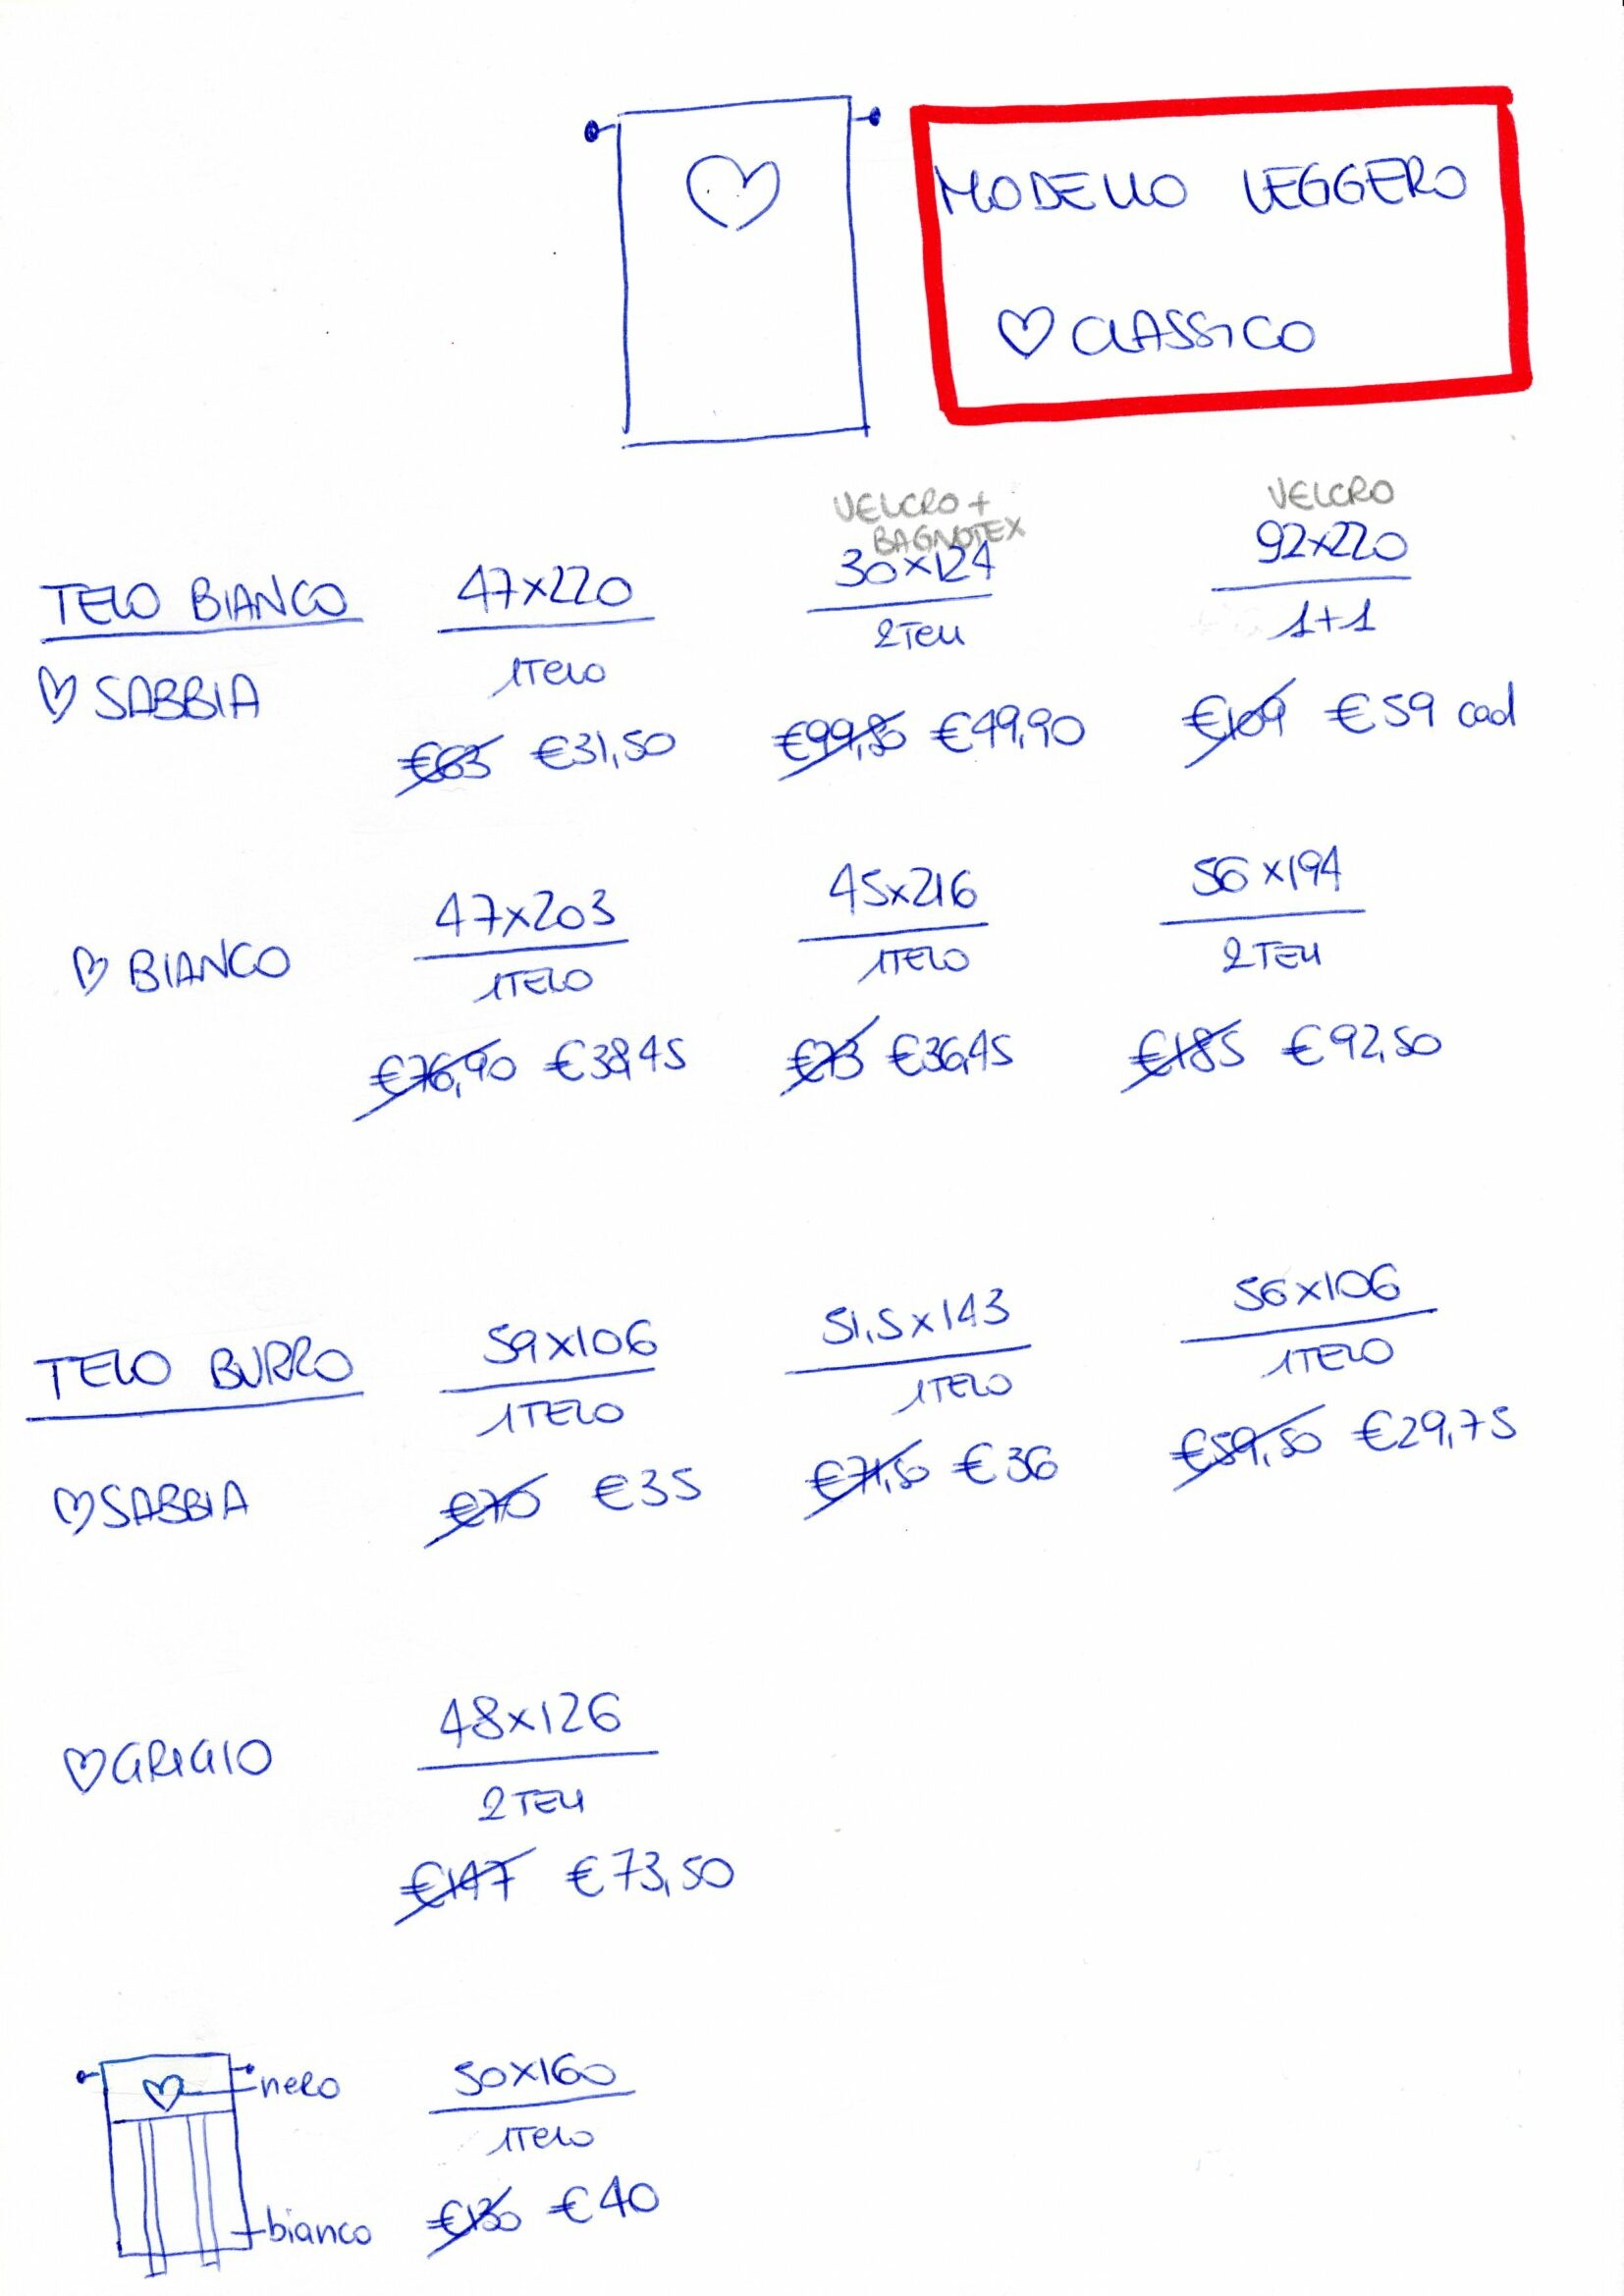 MODELLO LEGGERO
♡ CLASSICO
VELCRO +
BAGNOTEX
VELCRO
TELO BIANCO
47x220
30x124
92x220
1TELO
2TELI
1+1
♡ SABBIA
€63 €31,50
€99,80 €49,90
€109 €59 cad
♡ BIANCO
47x203
45x216
56x194
1TELO
1TELO
2TELI
€76,90 €38,45
€73 €36,45
€185 €92,50
TELO BURRO
59x106
51,5x143
56x106
1TELO
1TELO
1TELO
♡ SABBIA
€70 €35
€71,50 €36
€59,50 €29,75
♡ GRIGIO
48x126
2TELI
€147 €73,50
nero
50x160
1TELO
bianco
€130 €40